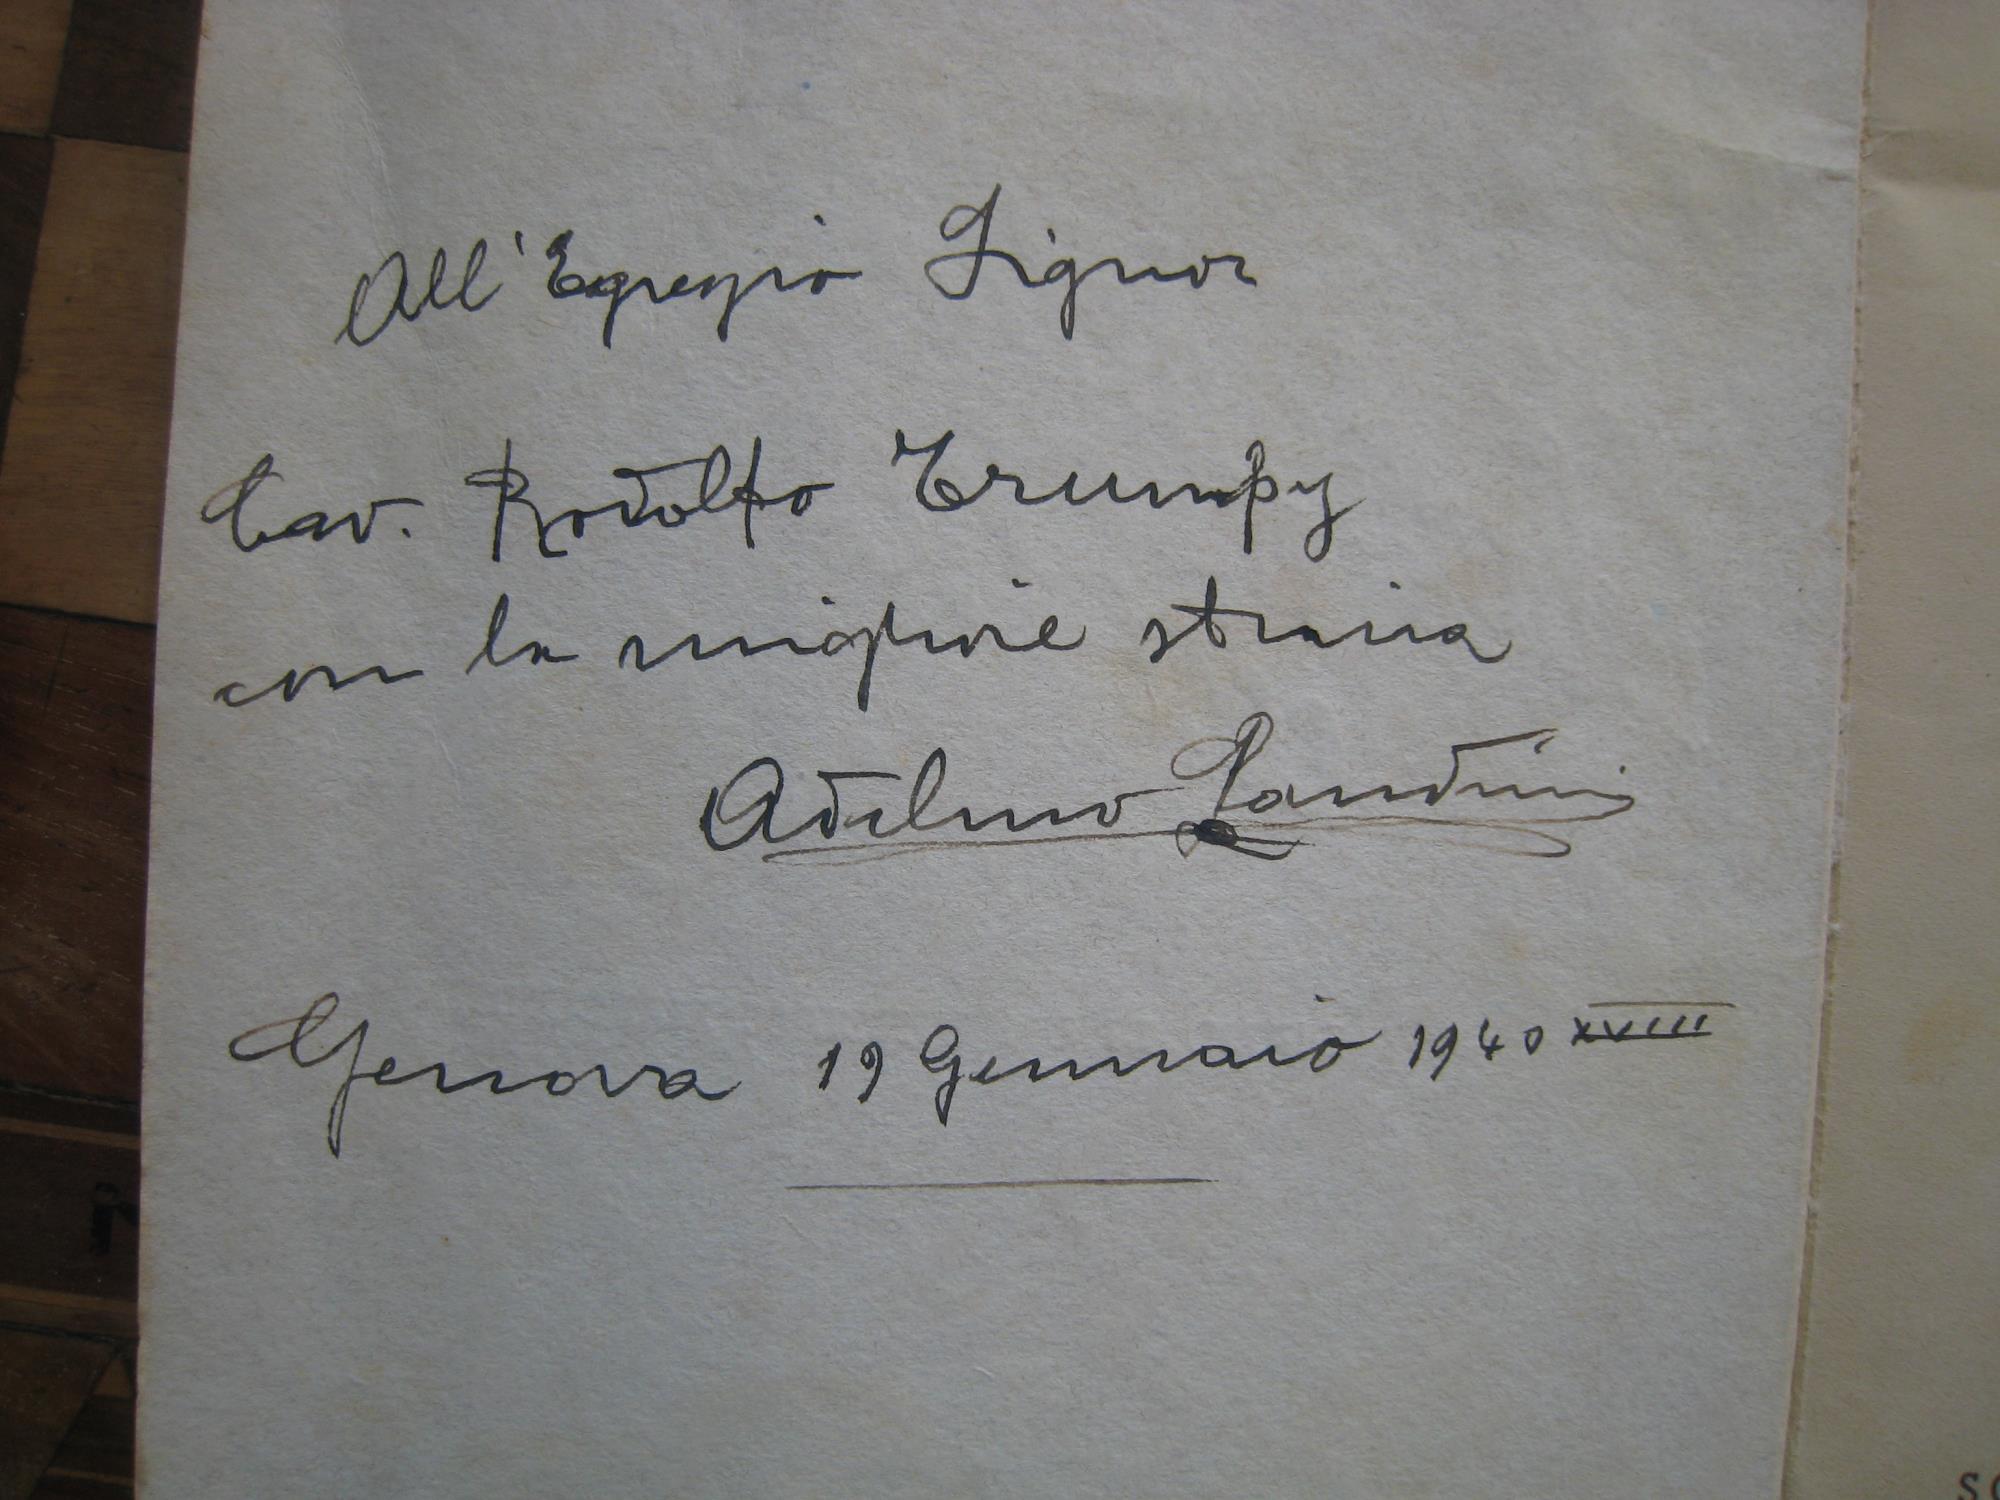 All'Egregio Signor
Cav. Rodolfo Trumpy
con la migliore stima
Adelmo Landini
Genova 19 Gennaio 1940 XVIII